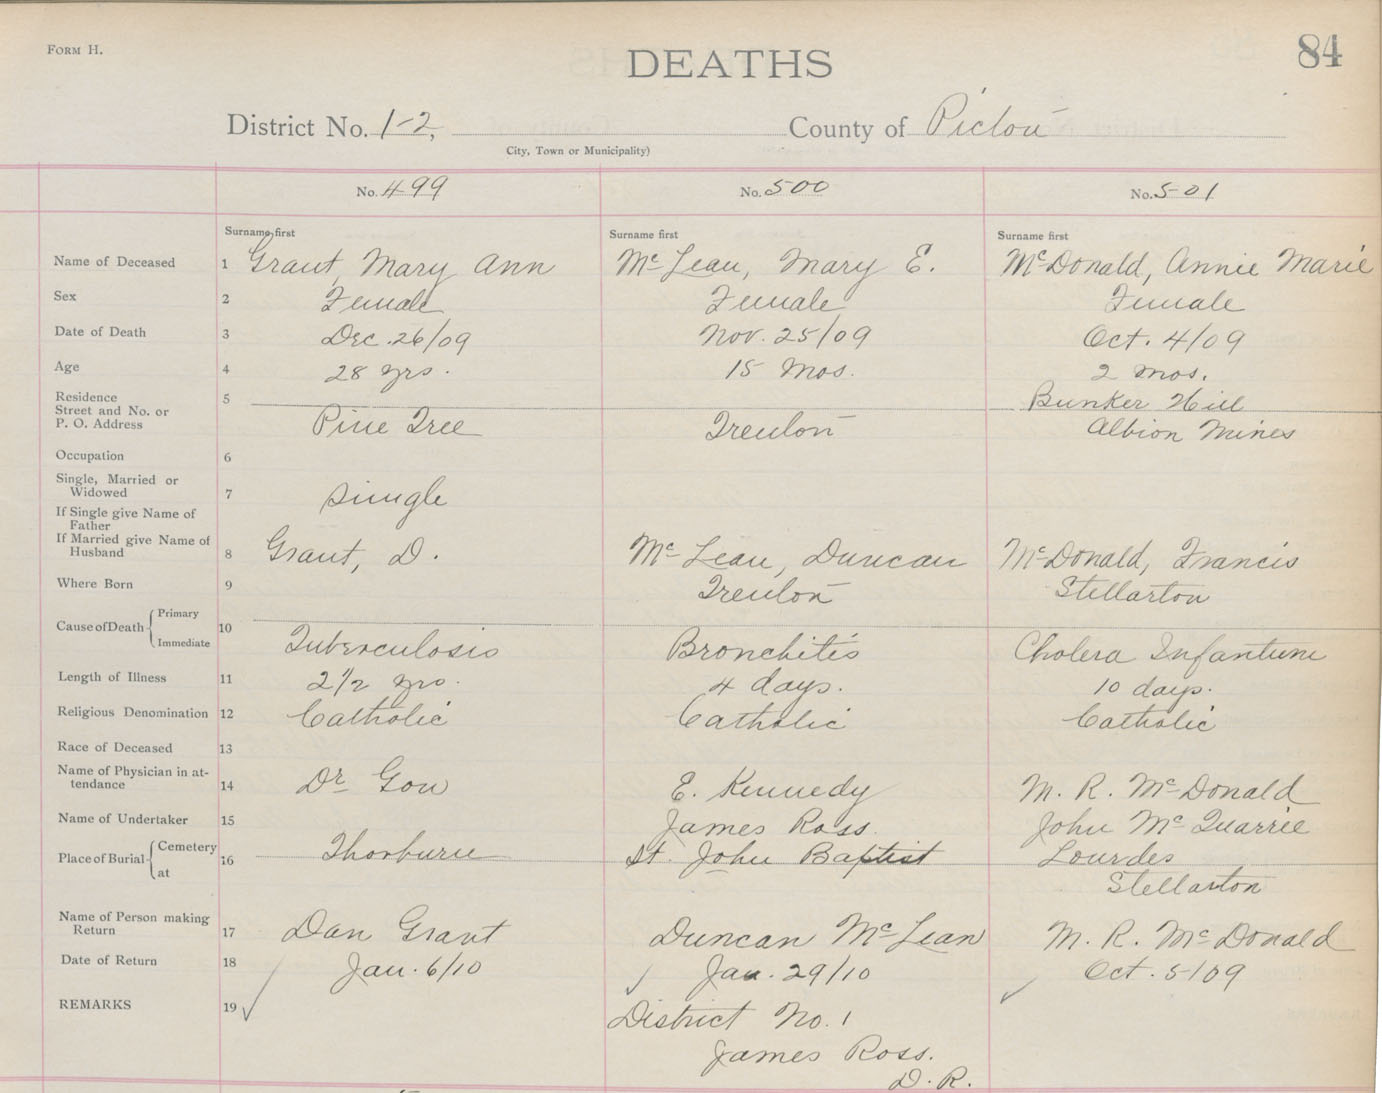 FORM H.
DEATHS
84
District No. 1-2,
County of Pictou
City, Town or Municipality)
No. 499
No. 500
No. 501
Surname first
Surname first
Surname first
Name of Deceased 1 Grant, Mary Ann McLean, Mary E. McDonald, Annie Marie
Sex 2 Female Female Female
Date of Death 3 Dec. 26/09 Nov. 25/09 Oct. 4/09
Age 4 28 yrs. 15 mos. 2 mos.
Residence 5 Bunker Hill
Street and No. or
P. O. Address Pine Tree Trenton Albion Mines
Occupation 6
Single, Married or
Widowed 7 Single
If Single give Name of
Father
If Married give Name of
Husband 8 Grant, D. McLean, Duncan McDonald, Francis
Where Born 9 Trenton Stellarton
Cause of Death Primary 10
Immediate Tuberculosis Bronchitis Cholera Infantum
Length of Illness 11 2 1/2 yrs. 4 days. 10 days.
Religious Denomination 12 Catholic Catholic Catholic
Race of Deceased 13
Name of Physician in at-
tendance 14 Dr Gow E. Kennedy M. R. McDonald
Name of Undertaker 15 James Ross. John McQuarrie
Place of Burial Cemetery 16 Thorburn St. John Baptist Lourdes
at Stellarton
Name of Person making
Return 17 Dan Grant Duncan McLean M. R. McDonald
Date of Return 18 Jan. 6/10 Jan. 29/10 Oct. 5/09
REMARKS 19 District No. 1
James Ross.
D. R.